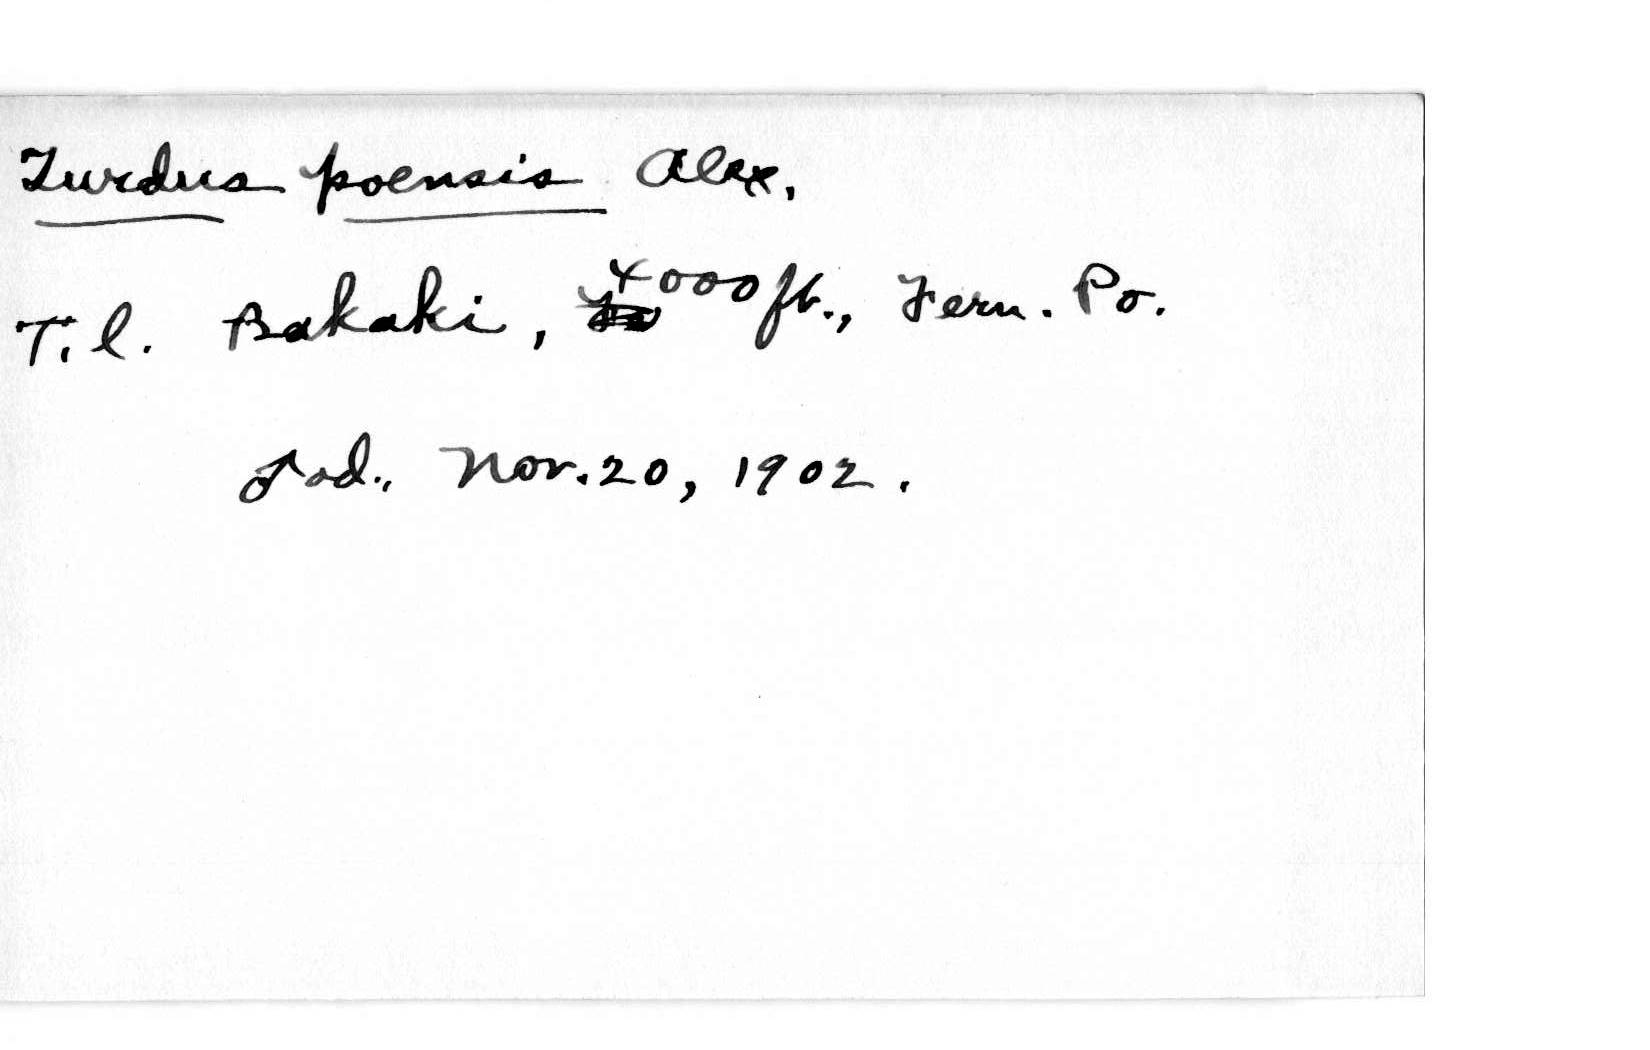 Turdus poensis Alex.
T.l. Bakaki, 4000ft., Fern. Po.
♂ad., Nov. 20, 1902.